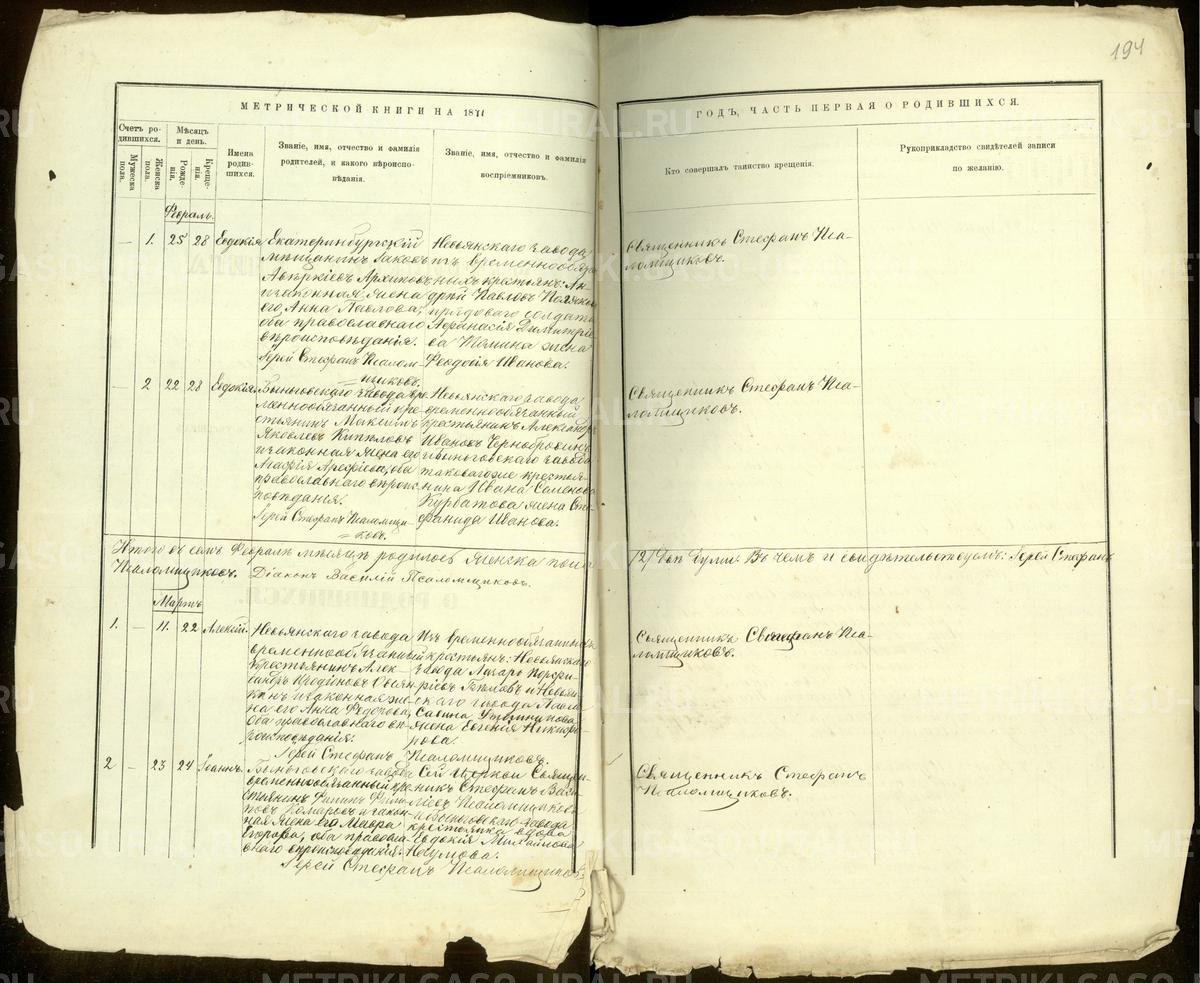 194
МЕТРИЧЕСКОЙ КНИГИ НА 1871
ГОДЪ, ЧАСТЬ ПЕРВАЯ О РОДИВШИХСЯ.
Счетъ ро-
дившихся.
Мужеска
пола.
Женска
пола.
Мѣсяцъ
и день.
Рожде-
нія.
Креще-
нія.
Имена
родив-
шихся.
Званіе, имя, отчество и фамилія
родителей, и какого вѣроиспо-
вѣданія.
Званіе, имя, отчество и фамилія
воспріемниковъ.
Кто совершалъ таинство крещенія.
Рукоприкладство свидѣтелей записи
по желанію.
Февраль.
— 1. 25 28 Евдокія
Екатеринбургскій
мѣщанинъ Іаковъ
Аверкіевъ Архиповъ
и законная жена
его Анна Павлова,
оба православнаго
вѣроисповѣданія.
Іерей Стефанъ Псалом-
щиковъ.
Невьянскаго завода
изъ временнообяза
ныхъ крестьянъ: Ан-
дрей Павловъ
рядоваго солдата
Аѳанасія Димитріе
ва Томина жена
Ѳеодосія Иванова.
Священникъ Стефанъ Пса-
ломщиковъ.
— 2 22 28 Евдокія.
Быньговскаго завода вре-
меннообязанный кре-
стьянинъ Максимъ
Яковлевъ Кипрловъ
и законная жена его
Марѳія Ареѳіева, оба
православнаго вѣроис-
повѣданія.
Іерей Стефанъ Псаломщи-
ковъ.
Невьянскаго завода
временнообязанный
крестьянинъ Александръ
Ивановъ Чернобровинъ
и Быньговскаго завода
таковагоже крестья-
нина Ивана Семенова
Курбатова жена Сте
фанида Иванова.
Священникъ Стефанъ Пса-
ломщиковъ.
Итого въ семъ Февралѣ мѣсяцѣ родилось женска пола
/2/ двѣ души. Въ чемъ и свидѣтельствуемъ: Іерей Стефанъ
Псаломщиковъ. Діаконъ Василій Псаломщиковъ.
Мартъ
1. — 11. 22 Алексій.
Невьянскаго завода
временнообязанный
крестьянинъ Алек-
сандръ Овсян-
кинъ и законная же-
на его Анна Ѳедотова,
оба православнаго вѣ-
роисповѣданія.
Іерей Стефанъ Псаломщиковъ.
Изъ временнообязанныхъ
крестьянъ: Невьянскаго
завода Лазарь Порфи-
ріевъ и Невьян-
скаго завода
Саввина
жена Евгенія Никифо-
рова.
Священникъ Стефанъ Пса-
ломщиковъ.
2 — 23 24 Іоаннъ.
Быньговскаго завода
временнообязанный кре-
стьянинъ Филиппъ
Комаровъ и закон-
ная жена его Мавра
Егорова, оба правосла-
внаго вѣроисповѣданія.
Іерей Стефанъ Псаломщиковъ.
Сей церкви Священ-
никъ Стефанъ Васи-
ліевъ Псаломщиковъ
и Быньговскаго завода
крестьянка вдова
Евдокія Михайлова
Наумова.
Священникъ Стефанъ
Псаломщиковъ.
METRIKI.GASO-URAL.RU